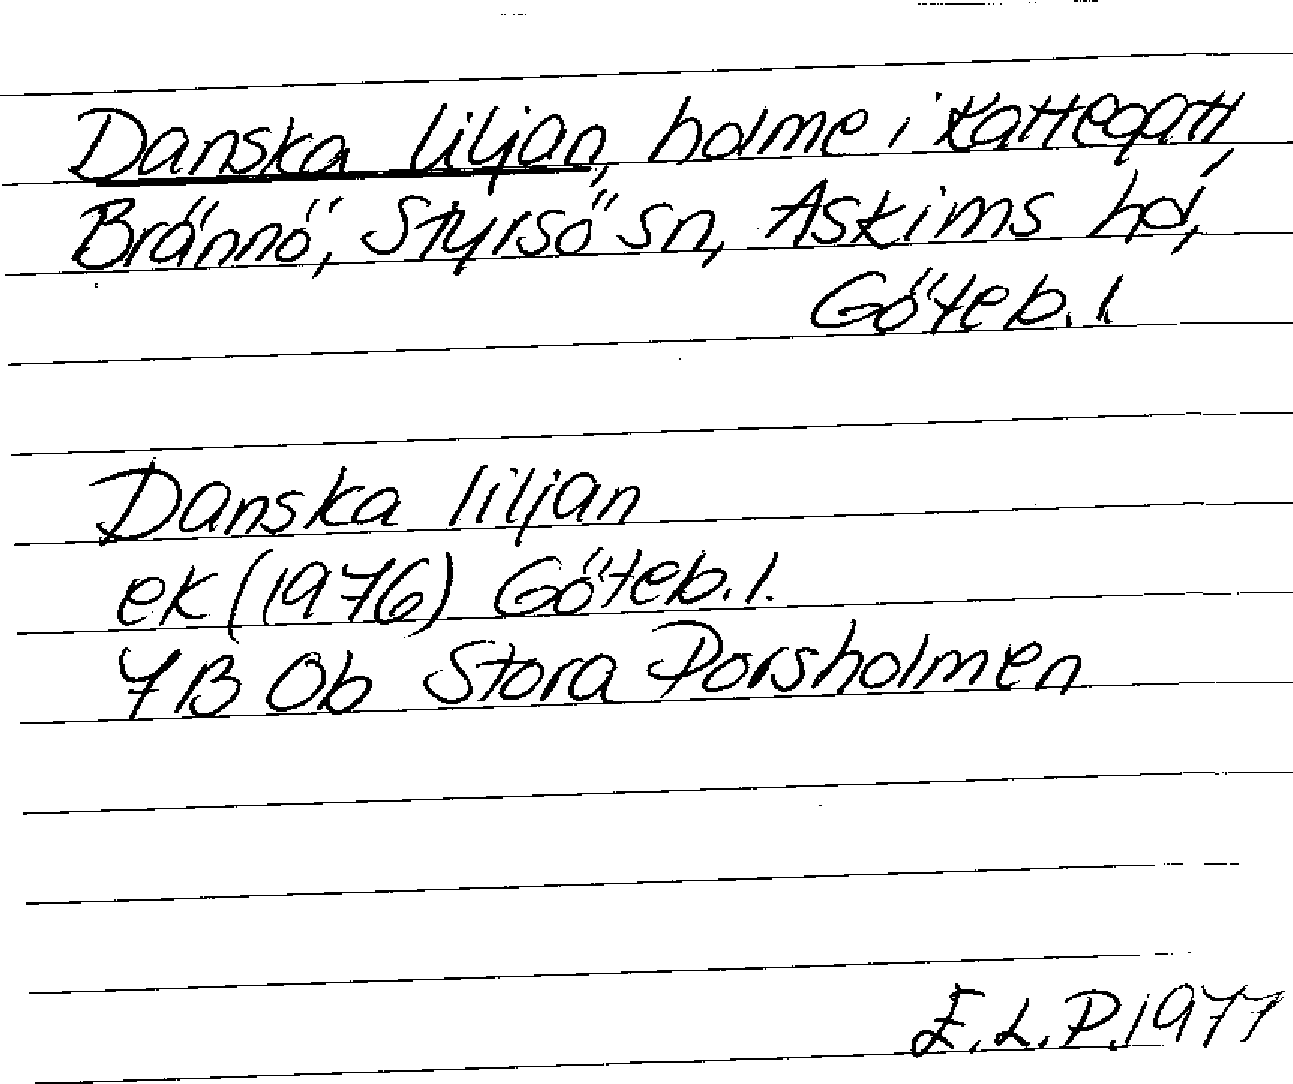 Danska liljan, holme i Kattegatt,
Brännö, Styrsö sn, Askims hd,
Göteb. l.
Danska liljan
ek (1976) Göteb. l.
7B Ob Stora Porsholmen
E.L.P. 1977